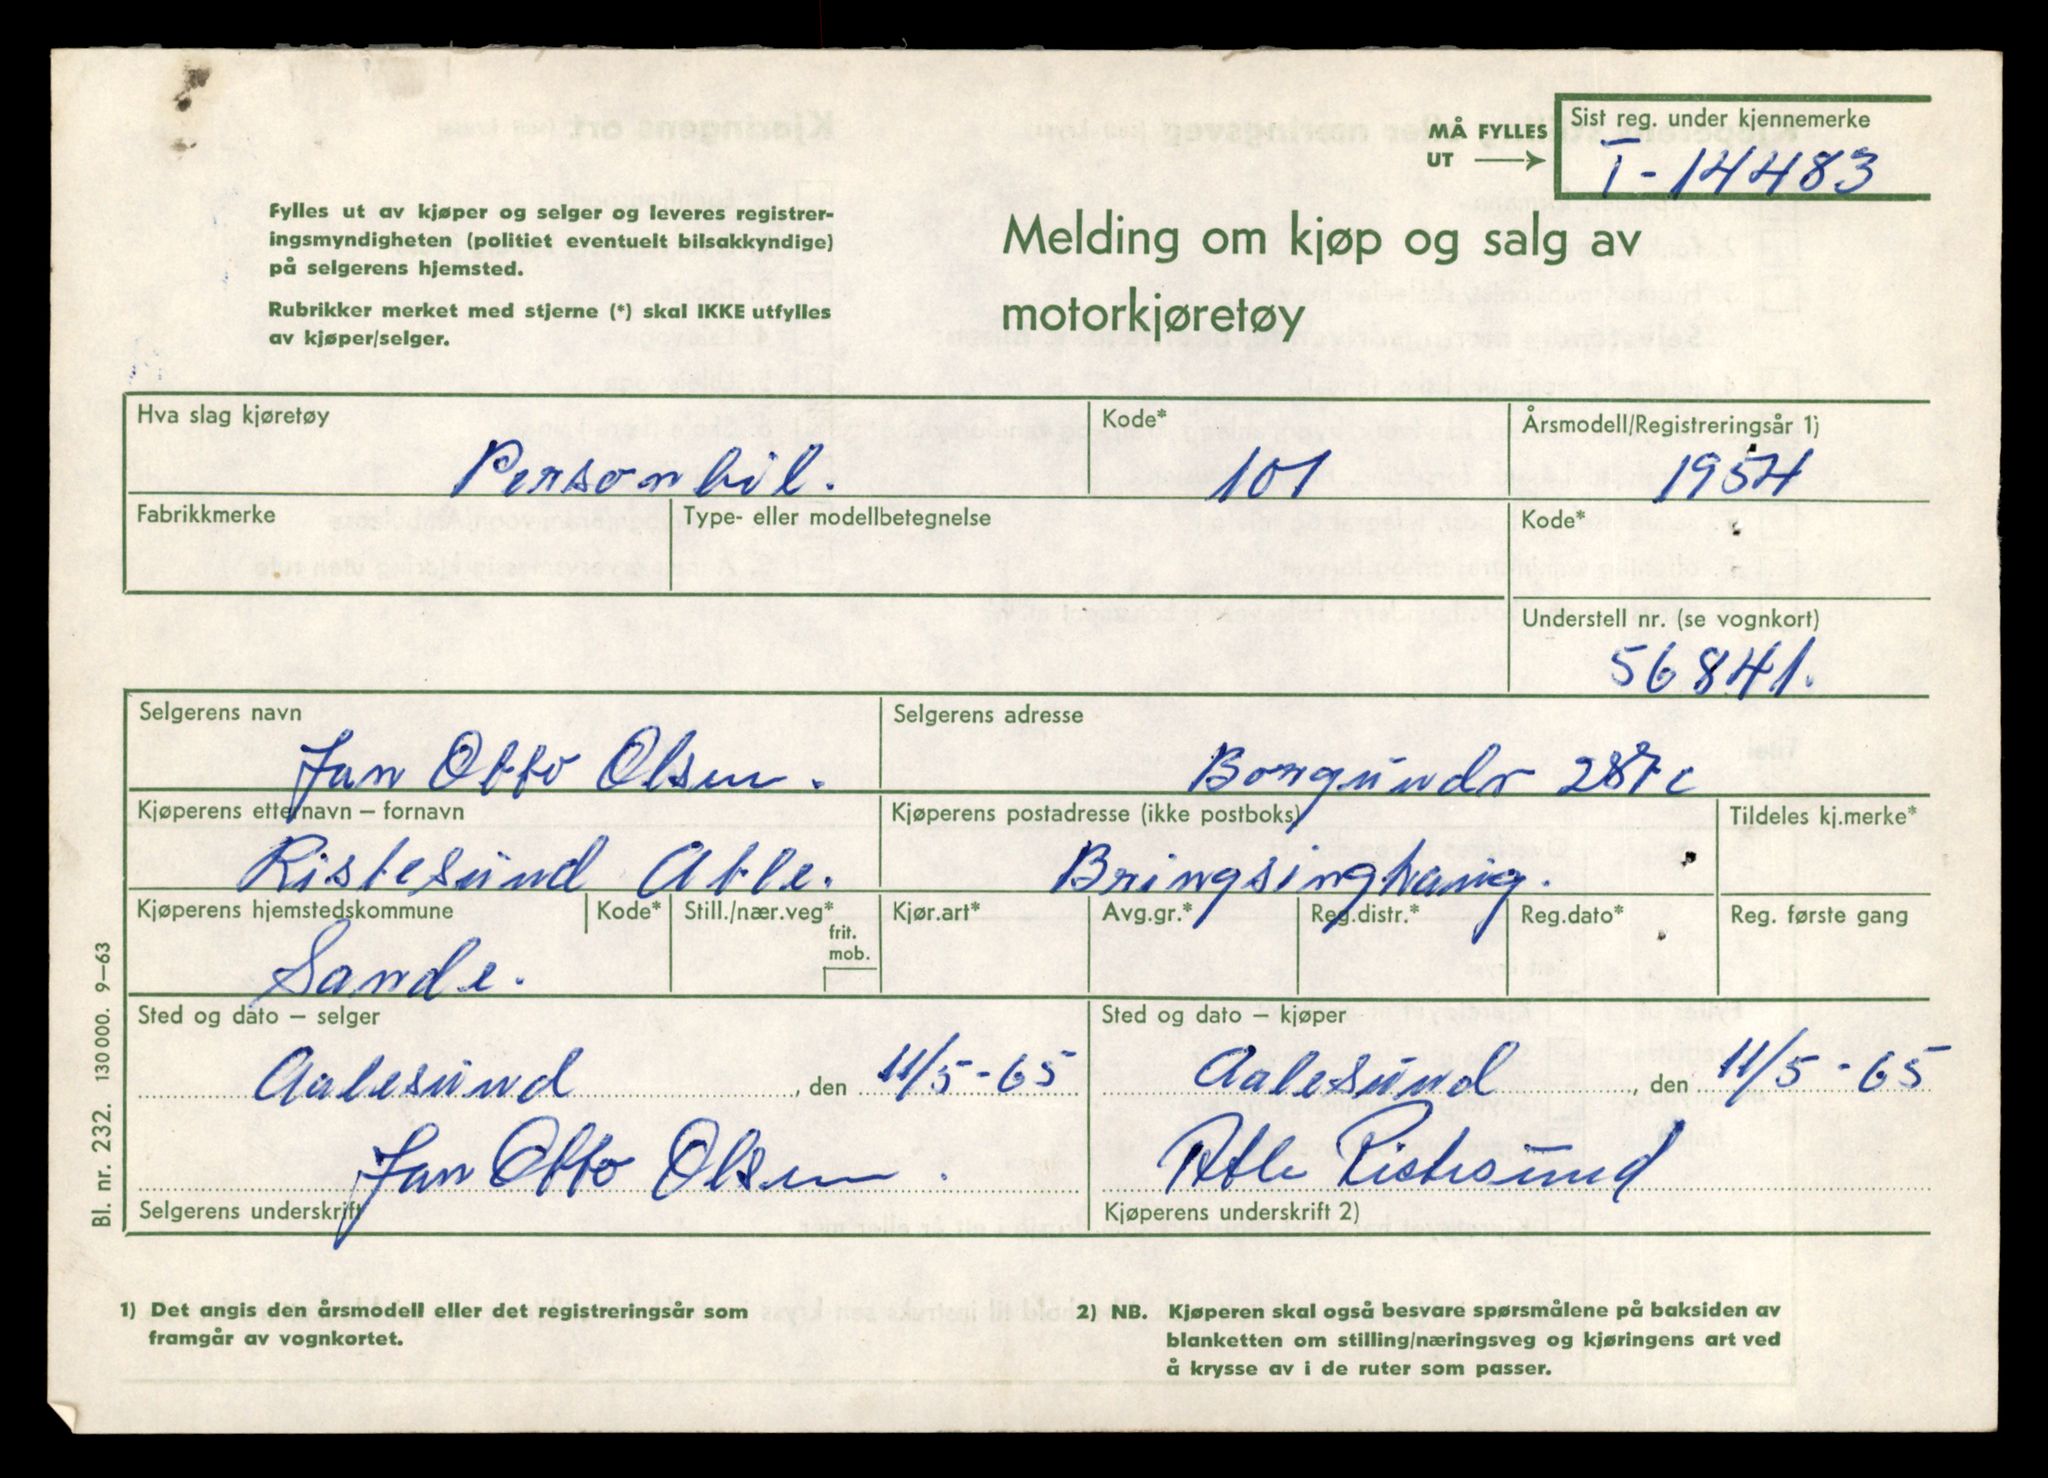 MÅ FYLLES UT → Sist reg. under kjennemerke
T-14483
Fylles ut av kjøper og selger og leveres registrer-
ingsmyndigheten (politiet eventuelt bilsakkyndige)
på selgerens hjemsted.
Rubrikker merket med stjerne (*) skal IKKE utfylles
av kjøper/selger.
Melding om kjøp og salg av
motorkjøretøy
Hva slag kjøretøy Kode* Årsmodell/Registreringsår 1)
Personbil. 101 1954
Fabrikkmerke Type- eller modellbetegnelse Kode*
Understell nr. (se vognkort)
56841.
Selgerens navn Selgerens adresse
Jan Otto Olsen. Borgundv 287c
Kjøperens etternavn – fornavn Kjøperens postadresse (ikke postboks) Tildeles kj.merke*
Ristesund Atle. Bringsinghaug.
Kjøperens hjemstedskommune Kode* Still./nær.veg* frit. mob. Kjør.art* Avg.gr.* Reg.distr.* Reg.dato* Reg. første gang
Sande.
Sted og dato – selger Sted og dato – kjøper
Aalesund, den 11/5-65 Aalesund, den 11/5-65
Jan Otto Olsen. Atle Ristesund
Selgerens underskrift Kjøperens underskrift 2)
1) Det angis den årsmodell eller det registreringsår som
framgår av vognkortet.
2) NB. Kjøperen skal også besvare spørsmålene på baksiden av
blanketten om stilling/næringsveg og kjøringens art ved
å krysse av i de ruter som passer.
Bl. nr. 232. 130 000. 9–63